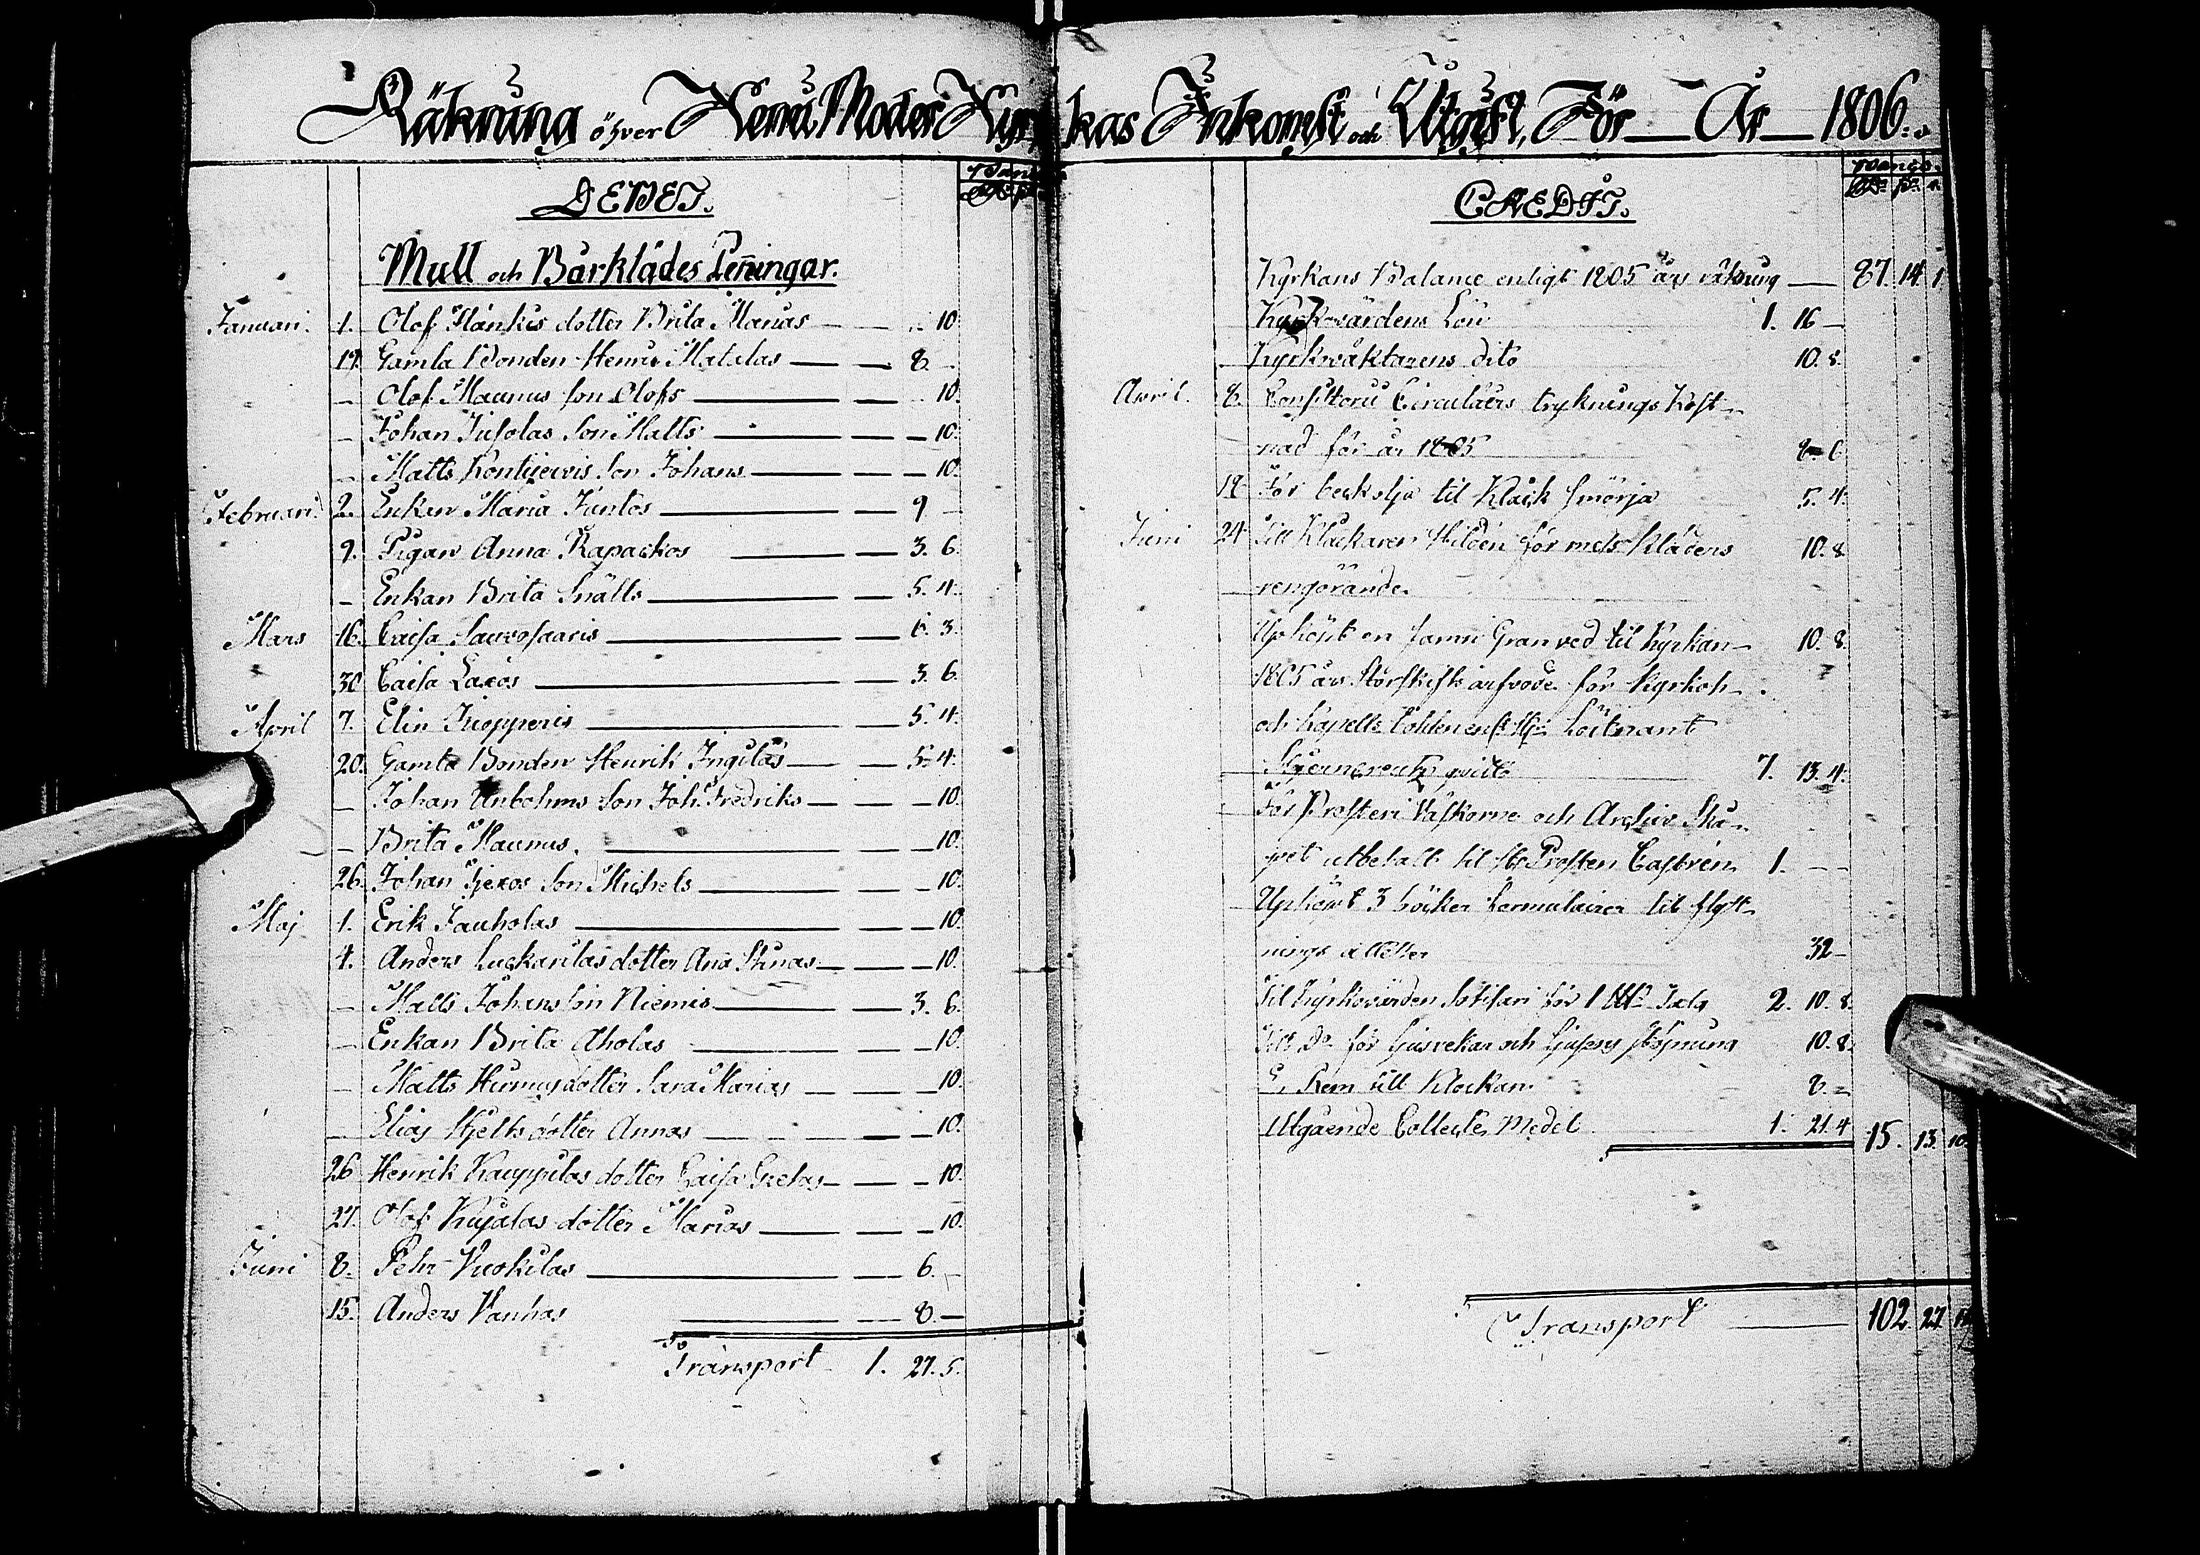 Räkning öfver Kemi Moder Kyrkas Inkomst och Utgift, För År 1806.
DEBET.
Mull och Bårklädes Peningar.
Januari. 1. Olof Hankis dotter Brita Marias 10.
Gamla Bonden Henric Matalas 8.
Olof Maunus son Olofs 10.
Johan Jusolas son Matts 10.
Matts son Johans 10.
Februari. 2. Enkan Maria Juntos 9
9. Pigan Anna Rapackos 3. 6.
Enkan Brita Snälls 5. 4.
Mars 16. Caisa Sauvosaaris 6. 3.
30 Caisa Laxos 3. 6.
April 7. Elin 5. 4.
20. Gamla Bonden Henrik Ingilas 5. 4.
Johan Unbohms son Joh: Fredriks 10.
Brita Maunus. 10.
26. Johan son Michels 10.
Maj 1. Erik Jauholas 10.
4. Anders Luckarilas dotter Ana Stinas 10.
Matts Johans son Niemis 3. 6.
Enkan Brita Aholas 10.
Matts dotter Sara Marias 10.
Elias Hjelts dotter Annas 10.
26 Henrik Kauppilas dotter Caisa Gretas 10.
27. Olof Kujalas dotter Marias 10.
Juni 8. Pehr Vuokilas 6.
15. Anders Vanhas 8.
Transport 1. 27. 5.
CREDIT.
Kyrkans Balance enligt 1805 års räkning 87. 14. 1
Kyrkovärdens Lön 1. 16
Kyrkväktarens dito 10. 8.
April. 8. Consistorii Circulairs tryknings Kost-
nad för år 1805 6
För beckolja til Klåck smörja 5. 4.
Juni 24 Till Klåckaren Hildén för mess Klädens 10. 8.
rengörande.
Upköpt en famn Gran ved til Kyrkan 10. 8.
1805 års Storskifts arfvode för Kyrkoh.
och Capells Bohlen Löitnant
7. 13. 4.
För Prosteri Väskorne och Archiv Skå-
pet utbetalt til Prosten Castrén 1.
Upköpt 3 böcker Formulairer til flytt-
nings attester 32
Til Kyrkovärden Sotisari för 1 Talg 2. 10. 8.
Till Do för Ljusvekar och Ljusens stöpning 10. 8.
Rem till Klockan 8.
Utgående Collecte Medel 1. 21. 4 15. 13. 10
Transport 102. 27.